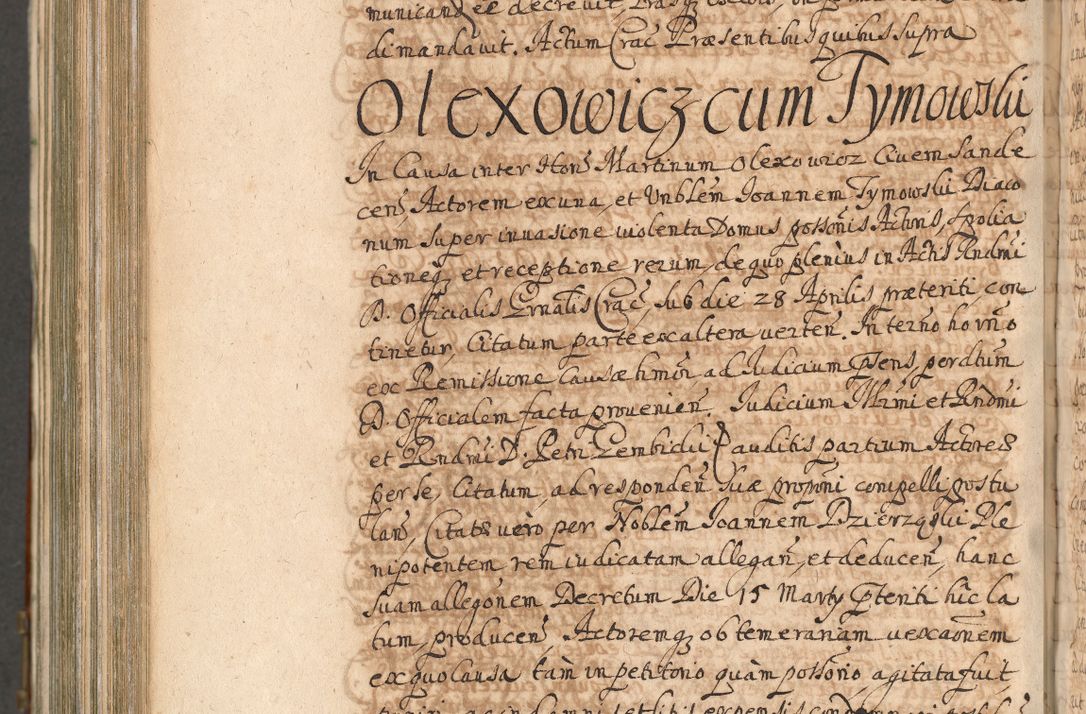 municand ee decrevit
di mandavit. Actum Crac Præsentibus quibus supra
Olexowicz cum Tymowski
In Causa inter Hons Martinum Olexowicz Civem Sande
cens Actorem ex una, et Vnblem Joannem Tymowski Diaco
num super invasione violenta Domus possonis Actoris, spolia
tioneq, et receptione rerum, de quo plenius in Actis Rndmi
D. Officialis Gnalis Crac, sub die 28 Aprilis præteriti, con
tinetur, Citatum parte ex altera verten. In termo ho rno
ex Remissione Causæ hmoi, ad Judicium pns, per dtum
D. Officialem facta provenien. Judicium Illrmi et Rndmi
et Rndmi D. Petri Gembicki auditis partium Actores
per se, Citatum, ad responden suæ proponi compelli postu
lans, Citats vero per Noblem Joannem Dzierzgski Ple
nipotentem rem iudicatam allegan, et deducen, hanc
suam allegonem Decretum Die 15 Marty pteriti hic la
tum, producens Actoremq ob temerariam vexaonem
ex quo Causa tam in petitorio quam possorio, agitata fuit
damni, et litis expensis